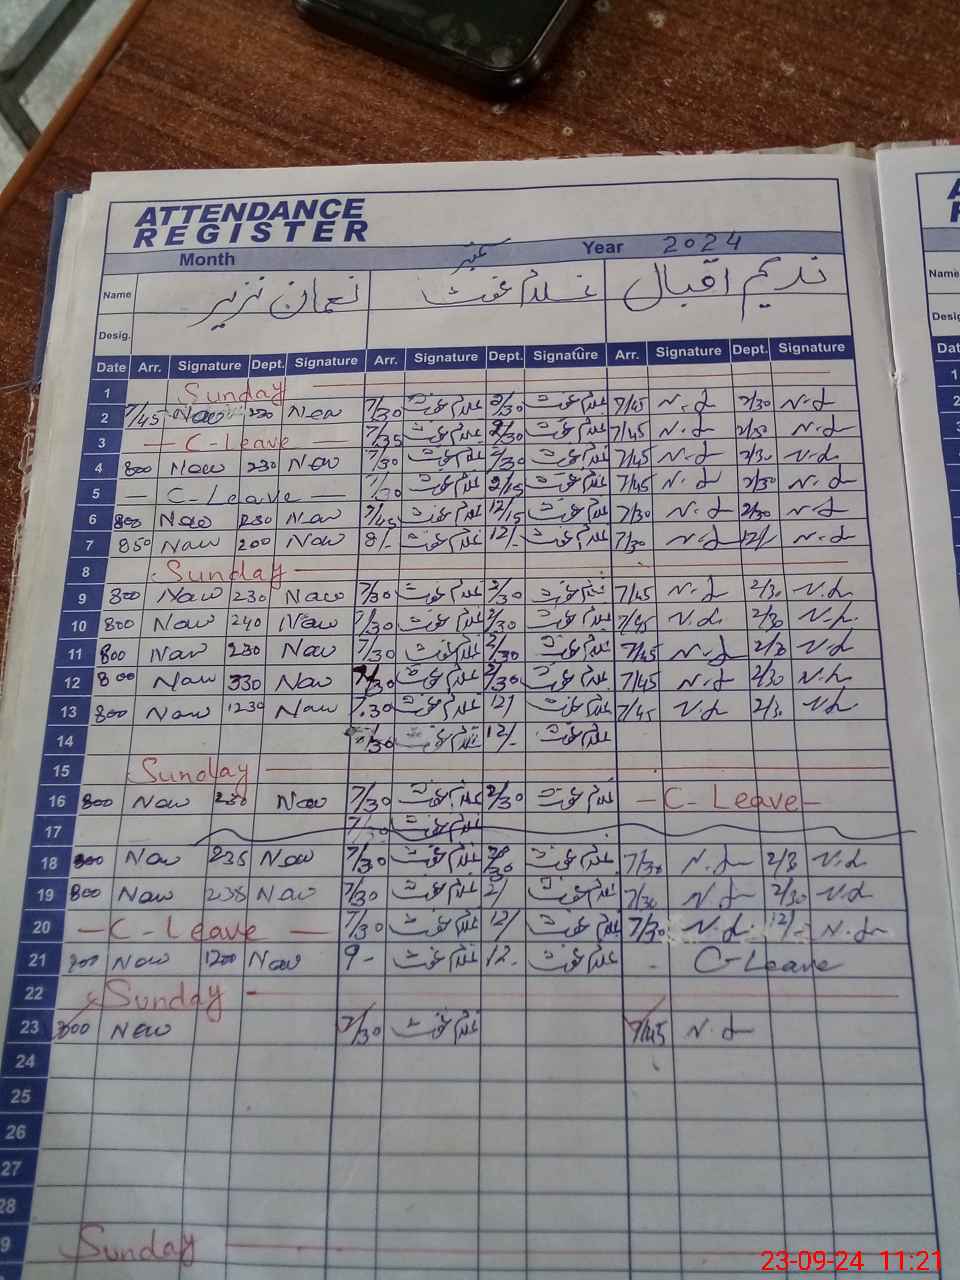 ATTENDANCE
REGISTER
Month ستمبر Year 2024
Name نعمان نزیر غلام غوث ندیم اقبال
Name
Desig.
Desig.
Date Arr. Signature Dept. Signature Arr. Signature Dept. Signature Arr. Signature Dept. Signature
1 Sunday
2 7/45 Naw 230 Naw 7/30 غلام غوث 2/30 غلام غوث 7/45 N.d 2/30 N.d
3 C-Leave 7/35 غلام غوث 2/30 غلام غوث 7/45 N.d 2/30 N.d
4 800 Naw 230 Naw 7/30 غلام غوث 2/30 غلام غوث 7/45 N.d 2/30 N.d
5 - C-Leave - 7/30 غلام غوث 2/15 غلام غوث 7/45 N.d 2/30 N.d
6 800 Naw 230 Naw 7/45 غلام غوث 12/15 غلام غوث 7/30 N.d 2/30 N.d
7 850 Naw 200 Naw 8/- غلام غوث 12/- غلام غوث 7/30 N.d 12/- N.d
8 Sunday
9 800 Naw 230 Naw 7/30 غلام غوث 2/30 غلام غوث 7/45 N.d 2/30 N.d
10 800 Naw 240 Naw 7/30 غلام غوث 2/30 غلام غوث 7/45 N.d 2/30 N.d
11 800 Naw 230 Naw 7/30 غلام غوث 2/30 غلام غوث 7/45 N.d 2/30 N.d
12 800 Naw 330 Naw 7/30 غلام غوث 2/30 غلام غوث 7/45 N.d 2/30 N.d
13 800 Naw 1230 Naw 7.30 غلام غوث 12/ غلام غوث 7/45 N.d 2/30 N.d
14 7/30 غلام غوث 12/- غلام غوث
15 Sunday
16 800 Naw 230 Naw 7/30 غلام غوث 2/30 غلام غوث - C- Leave -
17 7/30 غلام غوث
18 800 Naw 235 Naw 7/30 غلام غوث 2/30 غلام غوث 7/30 N.d 2/3 N.d
19 800 Naw 238 Naw 7/30 غلام غوث 2/ غلام غوث 7/30 N.d 2/30 N.d
20 - C - Leave - 7/30 غلام غوث 12/ غلام غوث 7/30 N.d 12/- N.d
21 800 Naw 1200 Naw 9- غلام غوث 12- غلام غوث - C-Leave
22 Sunday -
23 800 Naw 7/30 غلام غوث 7/45 N.d
24
25
26
27
28
9 Sunday
23-09-24 11:21